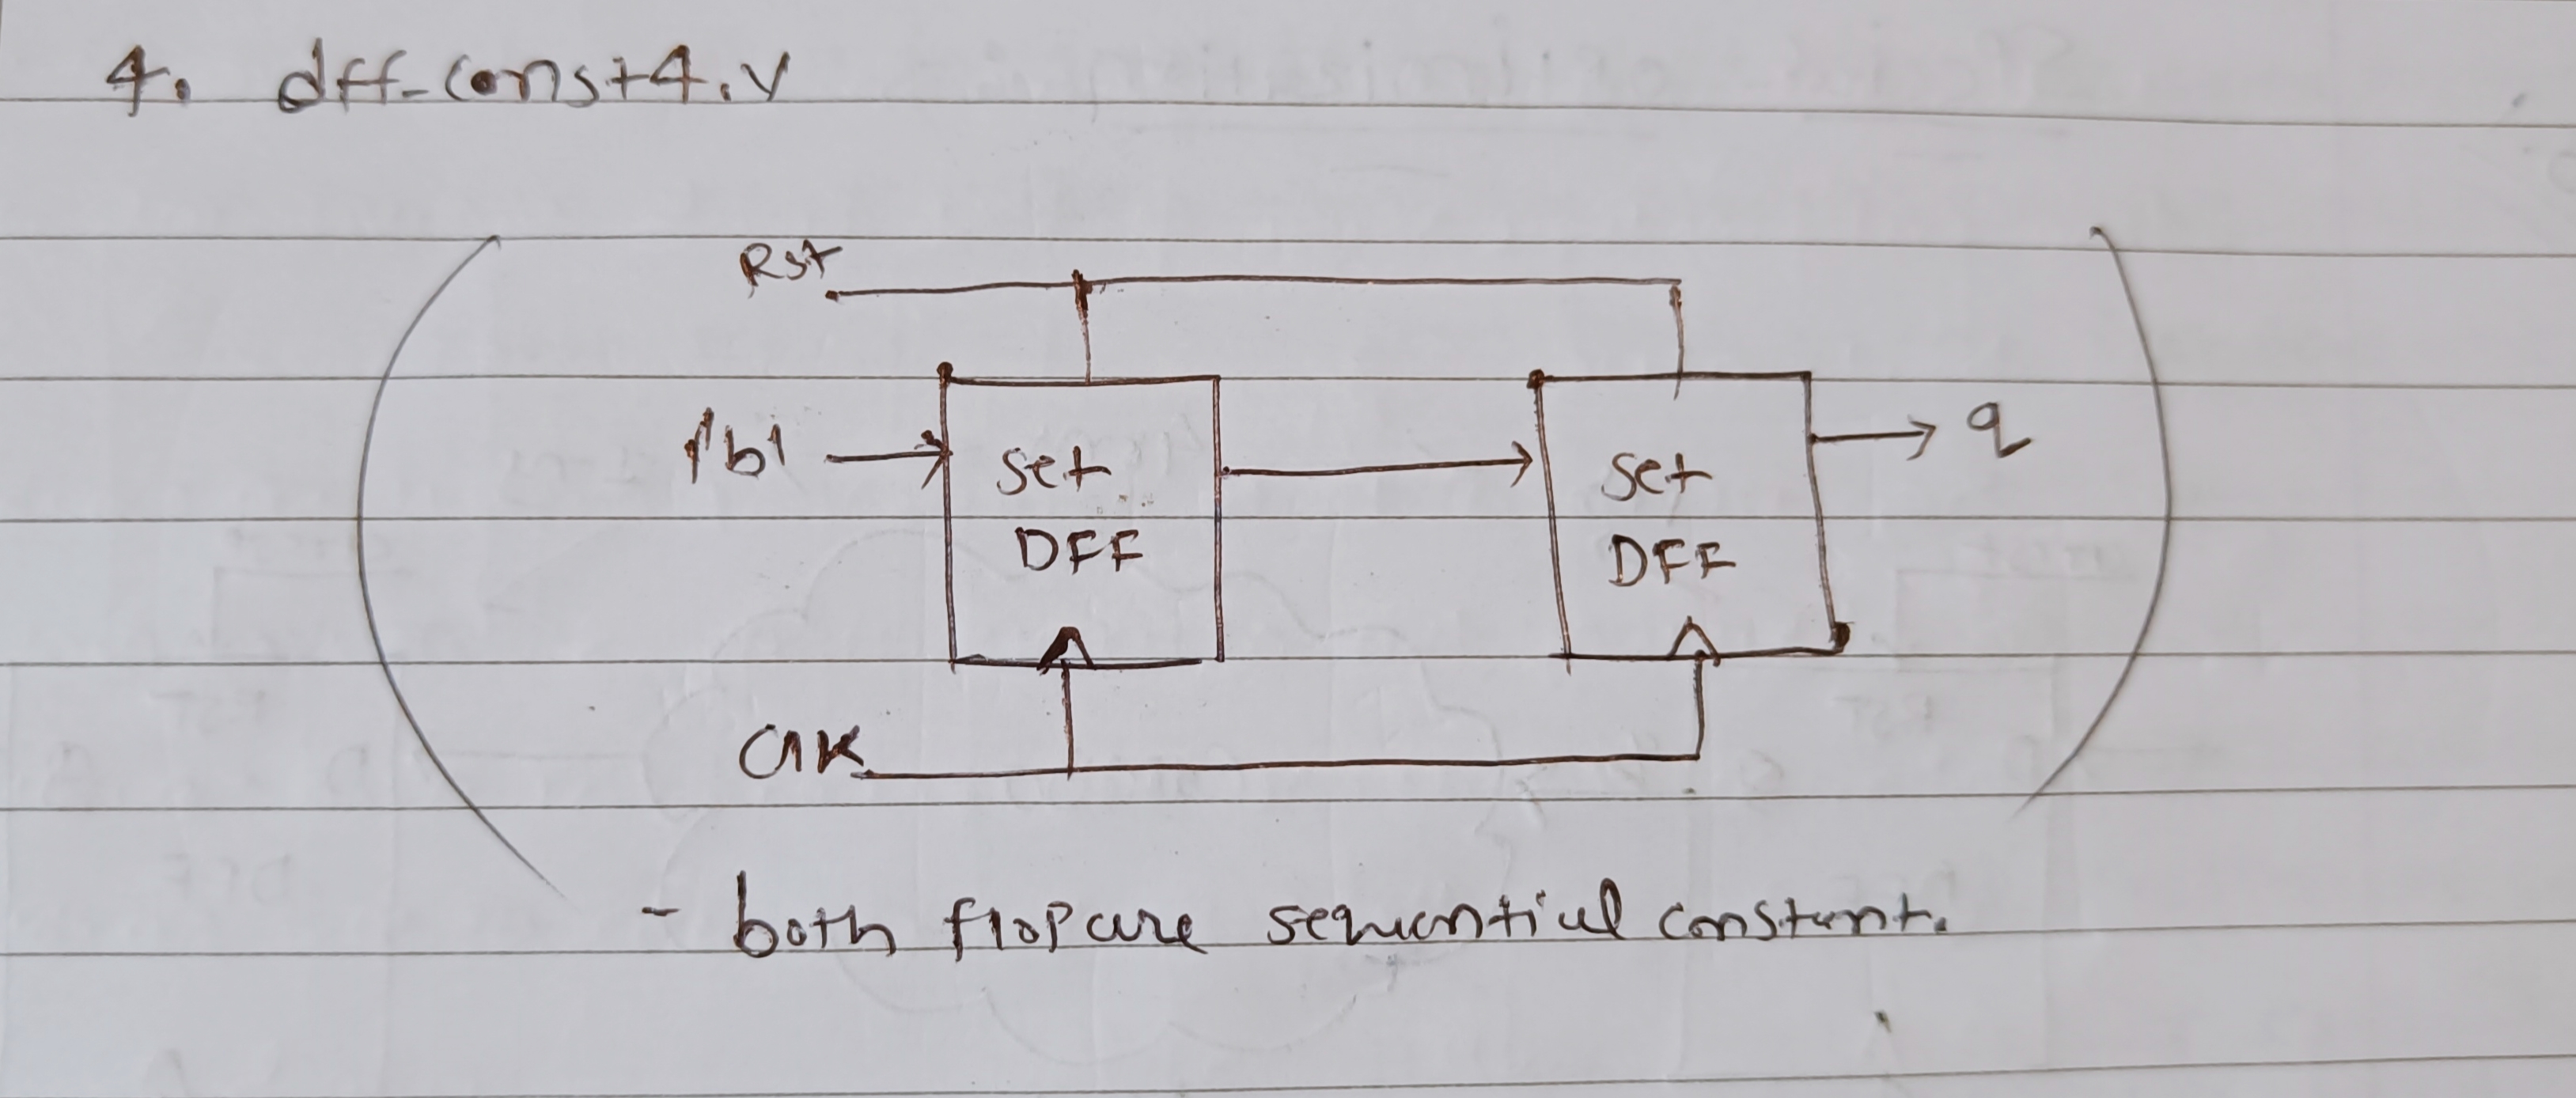 4. dff_const4.v
Rst
1'b1
set
DFF
set
DFF
q
Clk
- both flop are sequential constant.